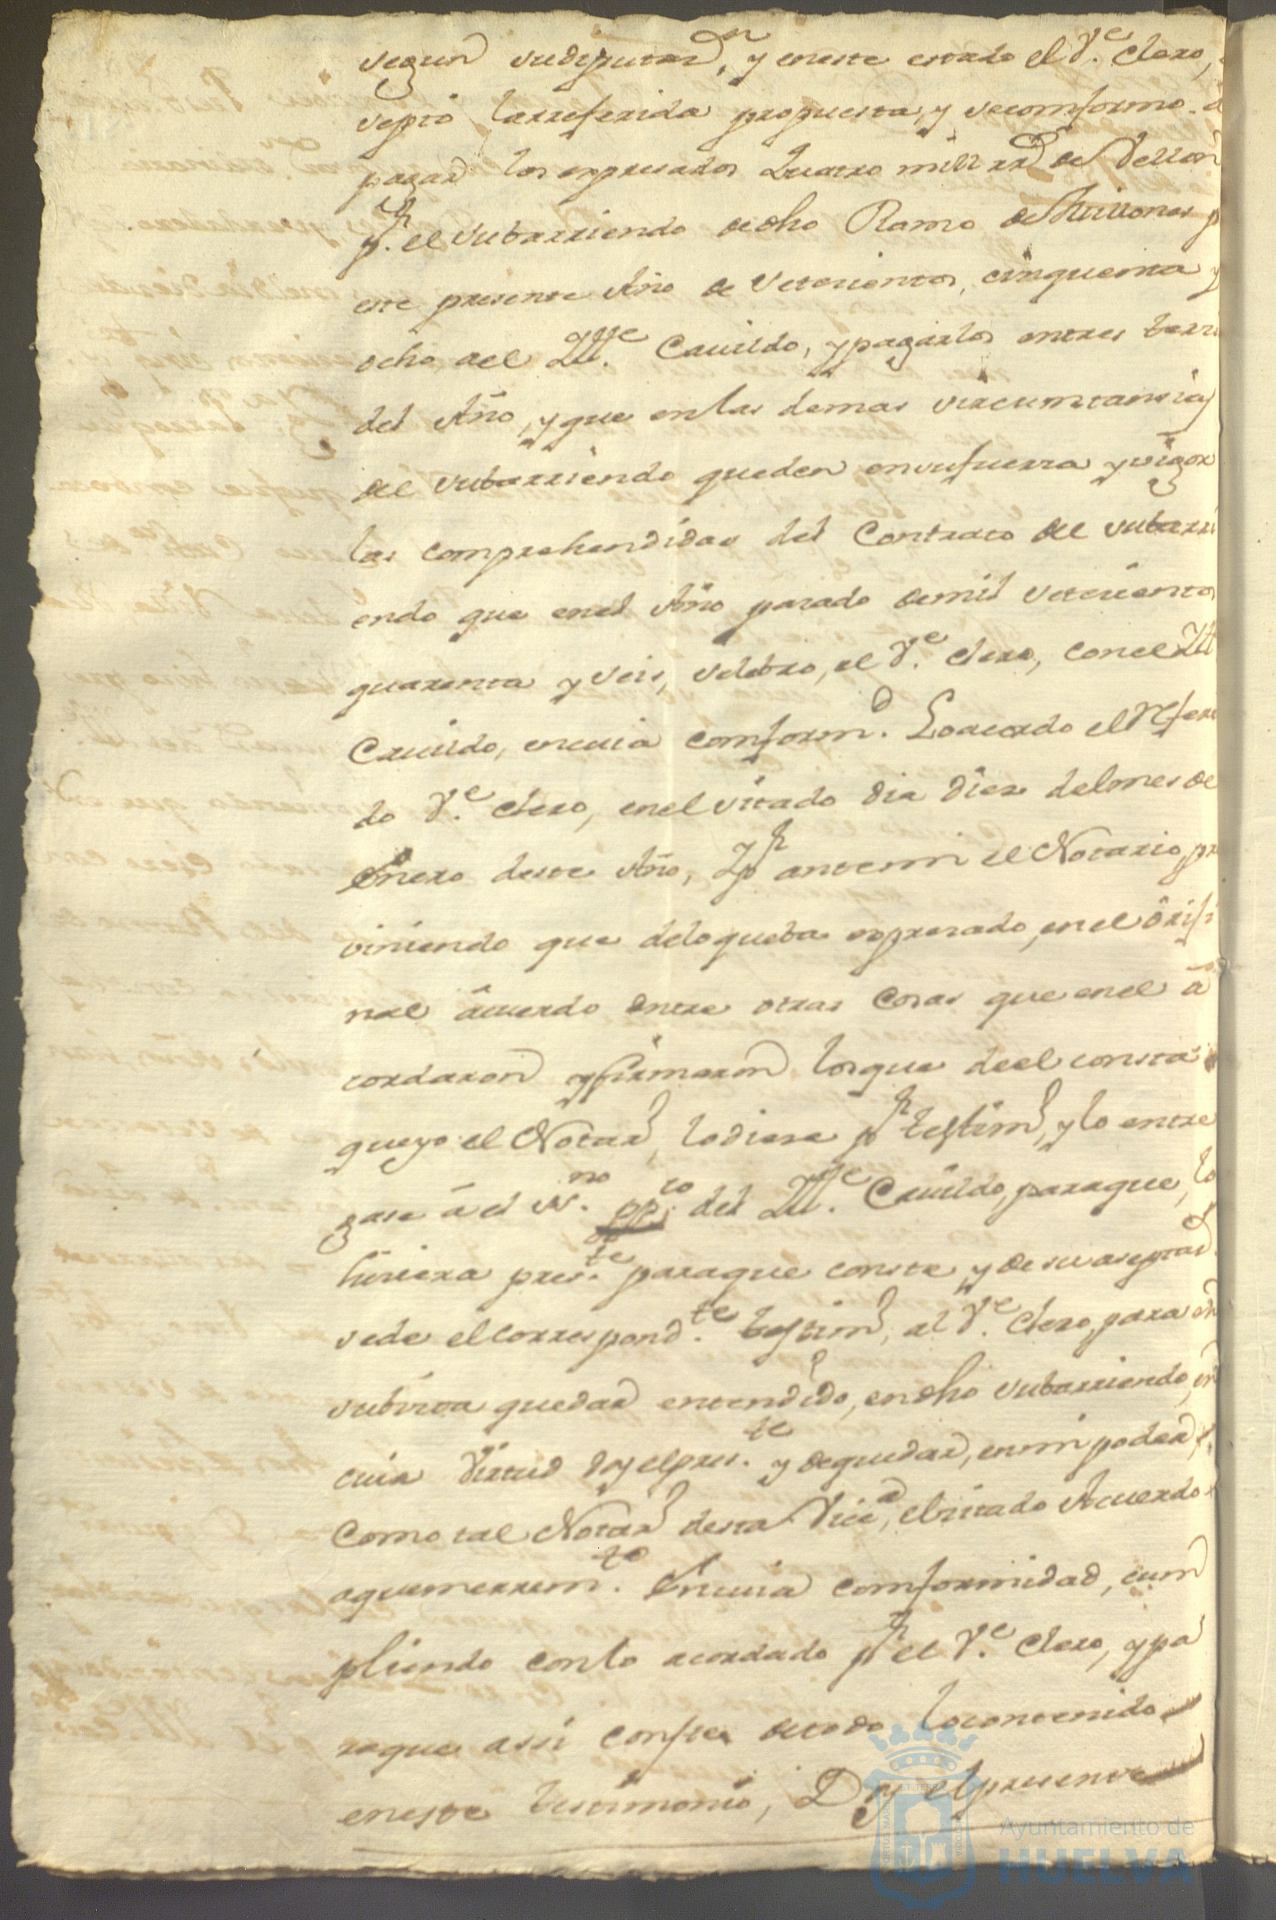 segun sudiputazn. y eneste estado el Ve. Clero,
septó larreferida propuesta, y seconformo. a
pagar los expresados Quatro mill rrs. de Vellon
pr. el subarriendo dedho Ramo de Millones p
este presente Año de Setecientos, cinquenta y
ocho, ael Ille. Cavildo, ypagarlos entres terzi
del Año, y que enlas demas circunstancias
ael subarriendo queden ensufuerza yvigor
las comprehendidas del Contrato ael subarri
endo que enel Año pasado demil setecientos
quarenta y seis, selebro, el Ve. Clero, conel Ill
Cavildo, encuia comformd. Loacordo el referi
do Ve. Clero, enel citado dia diez delmes de
Enero deste Año, Pr antemi el Notario, pre
viniendo que deloqueba expresado, enel óriji
nal ácuerdo entre otras Cosas que enel á
cordaron yfirmaron losque deel consta
queyo el Notar, lodiese pr testim, y lo entre
gase á el Sno. ppco. del Ille. Cavildo, paraque, lo
hiciera preste. paraque conste y desu aseptan
sede elcorrespondte. testim, al Ve. Clero, para en
subirtta quedar entendido, endho subarriendo, en
cuia Virtud doy elpreste. y dequedar, enmi poder,
Como tal Notar desta Vica, elcitado Acuerdo
aquemerremto. Encuia comformidad, cum
pliendo conlo acordado pr el Ve. Clero, ypa
raque assi conste detodo locontenido
eneste testimonio, Doy elpresente
Ayuntamiento de
HUELVA